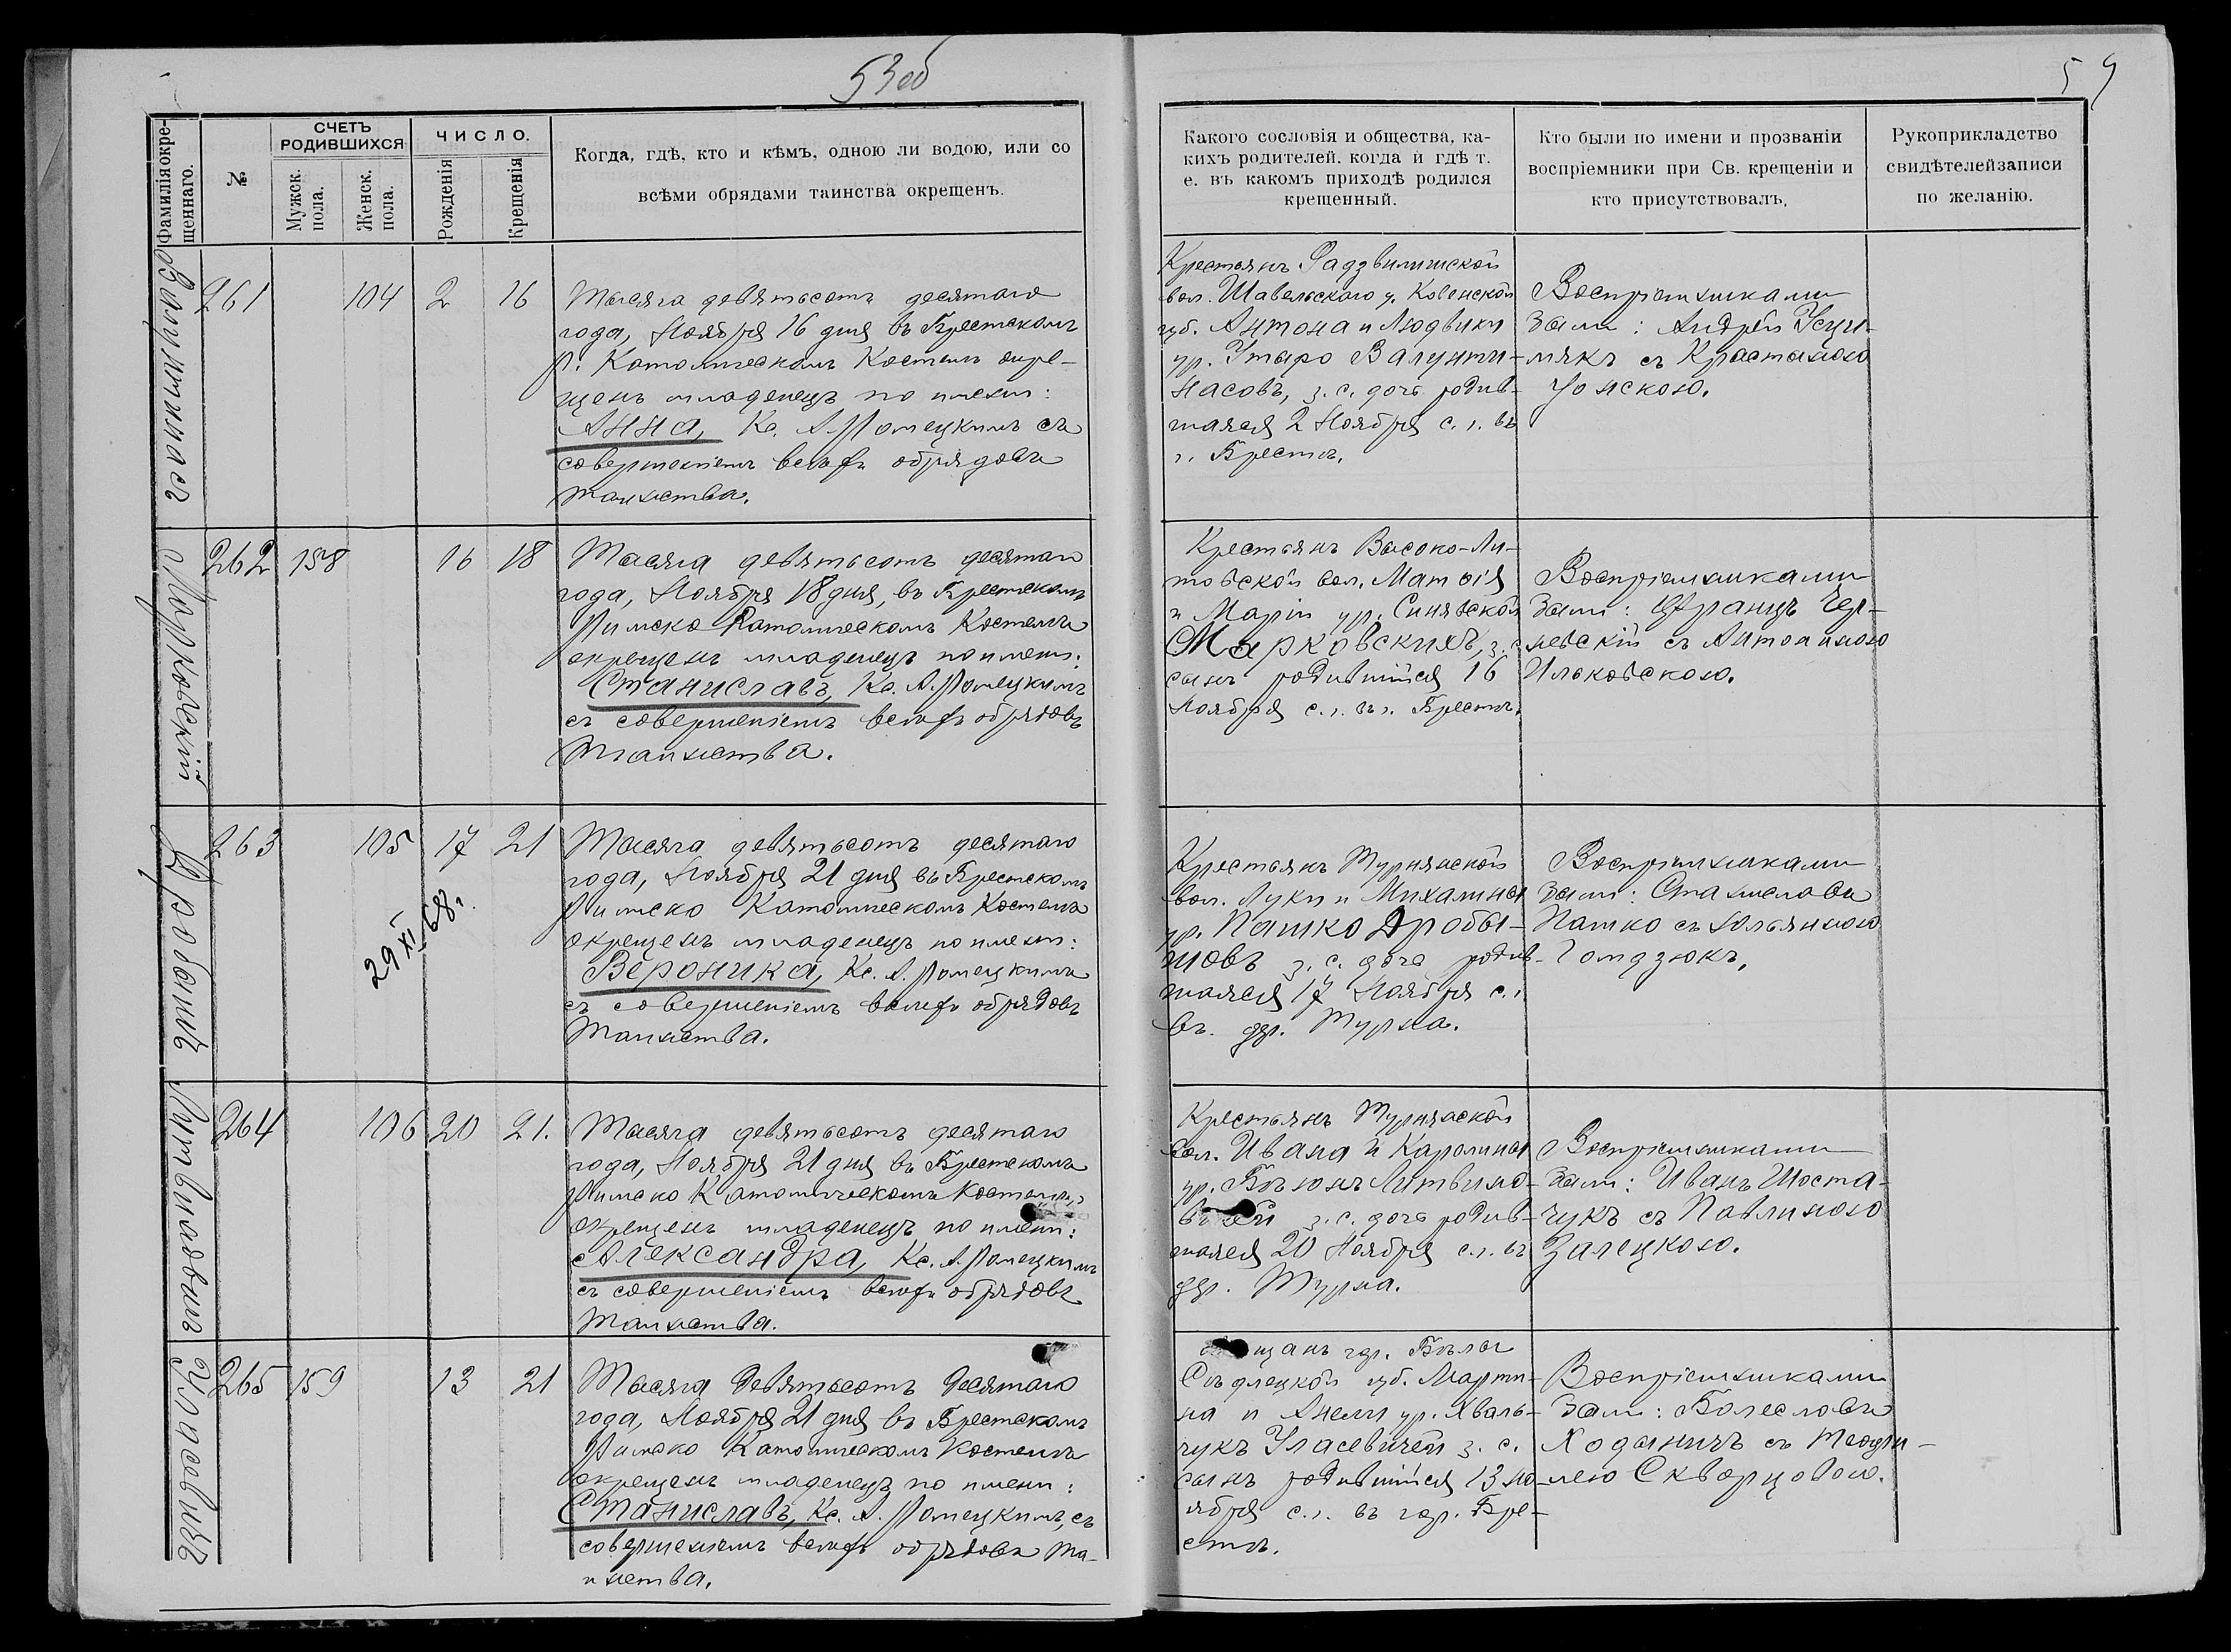 53 об
54
Фамилія окре-
щеннаго.
№
СЧЕТЪ
РОДИВШИХСЯ
Мужск.
пола.
Женск.
пола.
ЧИСЛО.
Рожденія
Крещенія
Когда, гдѣ, кто и кѣмъ, одною ли водою, или со
всѣми обрядами таинства окрещенъ.
Какого сословія и общества, ка-
кихъ родителей. когда и гдѣ т.
е. въ какомъ приходѣ родился
крещенный.
Кто были по имени и прозваніи
воспріемники при Св. крещеніи и
кто присутствовалъ.
Рукоприкладство
свидѣтелей записи
по желанію.
Валунтинасъ
261
104
2
16
Тысяча девятьсотъ десятаго
года, Ноября 16 дня въ Брестскомъ
Р. Католическомъ Костелѣ окре-
щенъ младенецъ по имени:
Анна, Кс. А. Ромецкимъ съ
совершеніемъ всѣхъ обрядовъ
таинства.
Крестьянъ Радзвилишской
вол. Шавельскаго у. Ковенской
губ. Антона и Людвики
ур. Утаро Валунти-
насовъ, з. с. дочь родив-
шаяся 2 Ноября с. г. въ
г. Брестѣ.
Воспріемниками
были: Андрей
съ Крастыною
262
158
16
18
Марковскій
Тысяча девятьсотъ десятаго
года, Ноября 18 дня, въ Брестскомъ
Римско Католическомъ Костелѣ
окрещенъ младенецъ по имени:
Станиславъ, Кс. А. Ромецкимъ
съ совершеніемъ всѣхъ обрядовъ
Таинства.
Крестьянъ Высоко-Ли-
товской вол. Матвія
и Маріи ур. Синявской
Марковскихъ, з. с.
сынъ родившійся 16
Ноября с. г. въ г. Брестѣ.
Воспріемниками
были: Францъ Чер-
невскій съ Антониною
Ильковскою.
Дробышъ
263
105
17
21
29 XI 68 г.
Тысяча девятьсотъ десятаго
года, Ноября 21 дня въ Брестскомъ
Римско Католическомъ Костелѣ
окрещенъ младенецъ по имени:
Вероника, Кс. А. Ромецкимъ
съ совершеніемъ всѣхъ обрядовъ
Таинства.
Крестьянъ Турнянской
вол. Луки и Михалины
ур. Пашко Дробы-
шовъ з. с. дочь родив-
шаяся 17 Ноября с. г.
въ дер. Турна.
Воспріемниками
были: Станиславъ
Пашко съ Юльянною
Гомдзюкъ.
Литвиновичъ
264
106
20
21.
Тысяча девятьсотъ десятаго
года, Ноября 21 дня въ Брестскомъ
Римско Католическомъ Костелѣ,
окрещенъ младенецъ по имени:
Александра, Кс. А. Ромецкимъ
съ совершеніемъ всѣхъ обрядовъ
Таинства.
Крестьянъ Турнянской
вол. Ивана и Каролины
ур. Литвино-
вичей з. с. дочь родив-
шаяся 20 Ноября с. г. въ
дер. Турна.
Воспріемниками
были: Иванъ Шоста-
чукъ съ Павлиною
Залецкою.
Уласевичъ
265
159
13
21
Тысяча девятьсотъ десятаго
года, Ноября 21 дня въ Брестскомъ
Римско Католическомъ Костелѣ
окрещенъ младенецъ по имени:
Станиславъ, Кс. А. Ромецкимъ, съ
совершеніемъ всѣхъ обрядовъ Та-
инства.
Мѣщанъ гор. Бѣлы
Сѣдлецкой губ. Марти-
на и Анели ур. Хваль-
чукъ Уласевичей з. с.
сынъ родившійся 13 но-
ября с. г. въ гор. Бре-
стѣ.
Воспріемниками
были: Болеславъ
Ходыничъ съ Теофи-
лею Скворцовою.